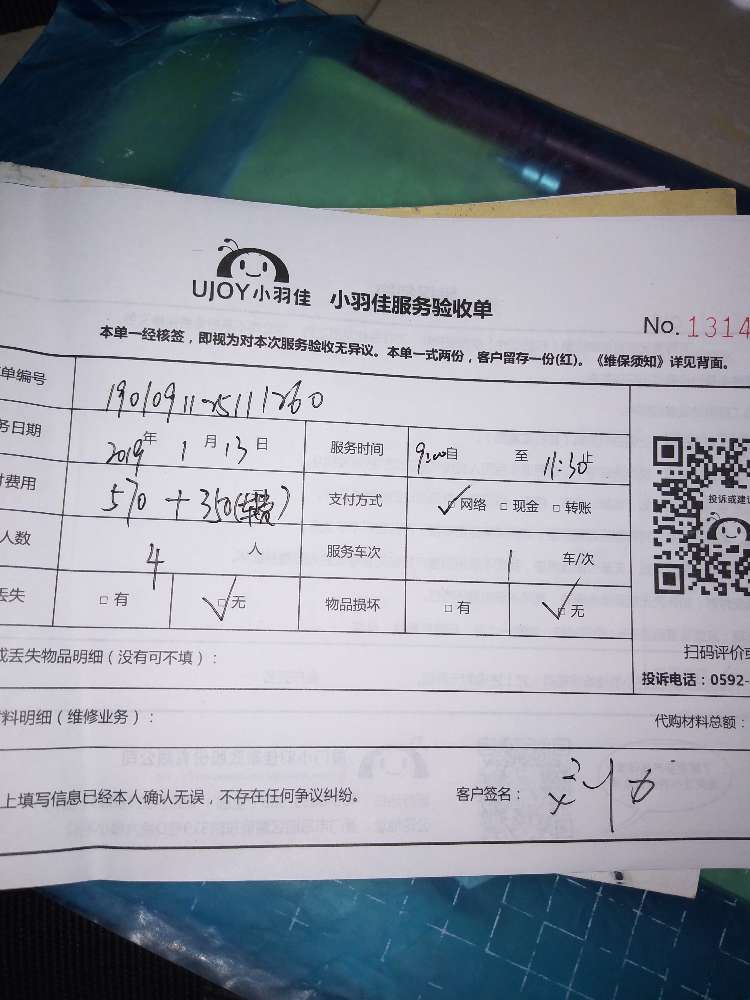 UJOY小羽佳 小羽佳服务验收单
No. 1314
本单一经核签，即视为对本次服务验收无异议。本单一式两份，客户留存一份(红)。《维保须知》详见背面。
单编号
务日期 2019年 1月 13日 服务时间 9:00自 至 11:30止
费用 570 + 350 支付方式 ✓网络 □现金 □转账
投诉或建
人数 4 人 服务车次 1 车/次
丢失 □有 ✓无 物品损坏 □有 ✓无
扫码评价或
或丢失物品明细（没有可不填）：
投诉电话：0592-
料明细（维修业务）：
代购材料总额：
上填写信息已经本人确认无误，不存在任何争议纠纷。 客户签名：